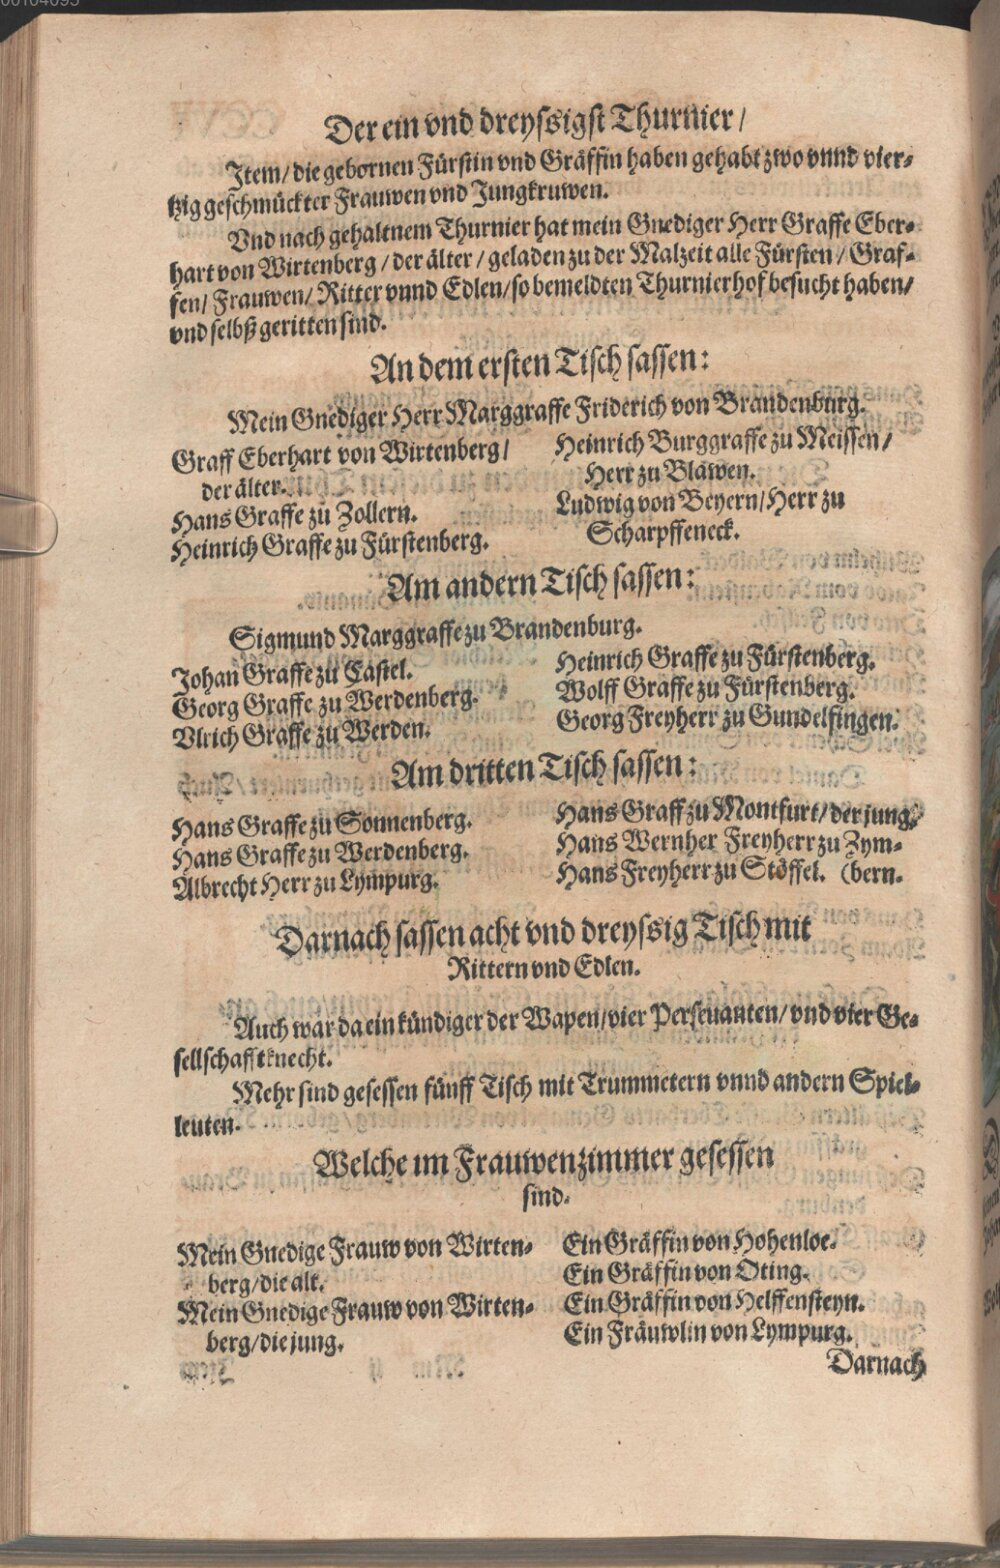 Der ein vnd dreyssigst Thurnier /
Item / die gebornen Fürstin vnd Gräffin haben gehabt zwo vnnd vier⸗
tzig geschmückter Frauwen vnd Jungkruwen.
Vnd nach gehaltnem Thurnier hat mein Gnediger Herr Graffe Eber⸗
hart von Wirtenberg / der älter / geladen zu der Malzeit alle Fürsten / Graf⸗
fen / Frauwen / Ritter vnnd Edlen / so bemeldten Thurnierhof besucht haben /
vnd selbß geritten sind.
An dem ersten Tisch sassen:
Mein Gnediger Herr Marggraffe Friderich von Brandenburg.
Graff Eberhart von Wirtenberg /
der älter.
Hans Graffe zu Zollern.
Heinrich Graffe zu Fürstenberg.
Heinrich Burggraffe zu Meissen /
Herr zu Bläwen.
Ludwig von Beyern / Herr zu
Scharpffeneck.
Am andern Tisch sassen:
Sigmund Marggraffe zu Brandenburg.
Johan Graffe zu Castel.
Georg Graffe zu Werdenberg.
Vlrich Graffe zu Werden.
Heinrich Graffe zu Fürstenberg.
Wolff Graffe zu Fürstenberg.
Georg Freyherr zu Gundelfingen.
Am dritten Tisch sassen:
Hans Graffe zu Sonnenberg.
Hans Graffe zu Werdenberg.
Albrecht Herr zu Lympurg.
Hans Graff zu Montfurt / der jung.
Hans Wernher Freyherr zu Zym⸗
Hans Freyherr zu Stöffel. (bern.
Darnach sassen acht vnd dreyssig Tisch mit
Rittern vnd Edlen.
Auch war da ein kündiger der Wapen / vier Perseuanten / vnd vier Ge⸗
sellschafftknecht.
Mehr sind gesessen fünff Tisch mit Trummetern vnnd andern Spiel⸗
leuten.
Welche im Frauwenzimmer gesessen
sind.
Mein Gnedige Frauw von Wirten⸗
berg / die alt.
Mein Gnedige Frauw von Wirten⸗
berg / die jung.
Ein Gräffin von Hohenloe.
Ein Gräffin von Öting.
Ein Gräffin von Helffensteyn.
Ein Fräuwlin von Lympurg.
Darnach